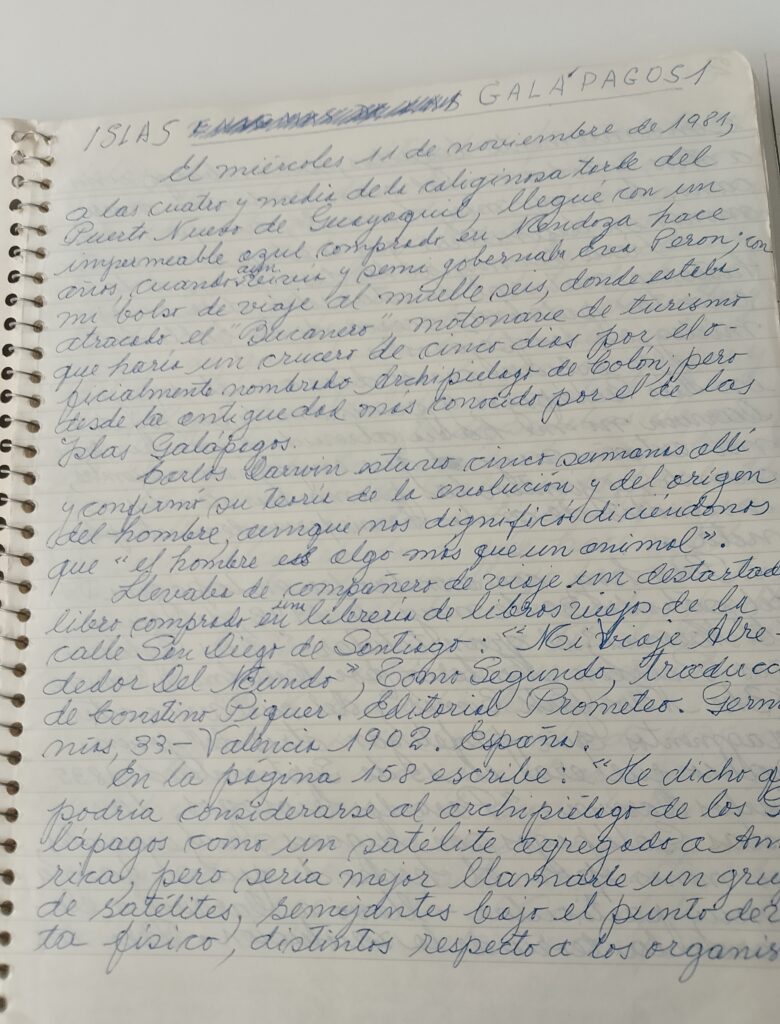 ISLAS GALÁPAGOS 1
El miércoles 11 de noviembre de 1981,
a las cuatro y media de la caliginosa tarde del
Puerto Nuevo de Guayaquil, llegué con un
impermeable azul comprado en Mendoza hace
años, cuando aún vivía y semi gobernaba Eva Peron; con
mi bolso de viaje al muelle seis, donde estaba
atracado el "Bucanero" motonave de turismo
que haría un crucero de cinco dias por el o-
ficialmente nombrado Archipiélago de Colón, pero
desde la antiguedad más conocido por el de las
Islas Galápagos.
Carlos Darwin estuvo cinco semanas allí
y confirmó su teoría de la evolucion y del origen
del hombre, aunque nos dignificó diciéndonos
que "el hombre es algo más que un animal".
Llevaba de compañero de viaje un destartad
libro comprado en una librería de libros viejos de la
calle San Diego de Santiago: "Mi Viaje Alre-
dedor Del Mundo", Tomo Segundo, traducc
de Constino Piquer. Editorial Prometeo. Germ
nías, 33.- Valencia 1902. España.
En la página 158 escribe: "He dicho q
podría considerarse al archipiélago de los G
lápagos como un satélite agregado a Am
rica, pero sería mejor llamarle un gru
de satélites, semejantes bajo el punto de
ta físico, distintos respecto a los organis